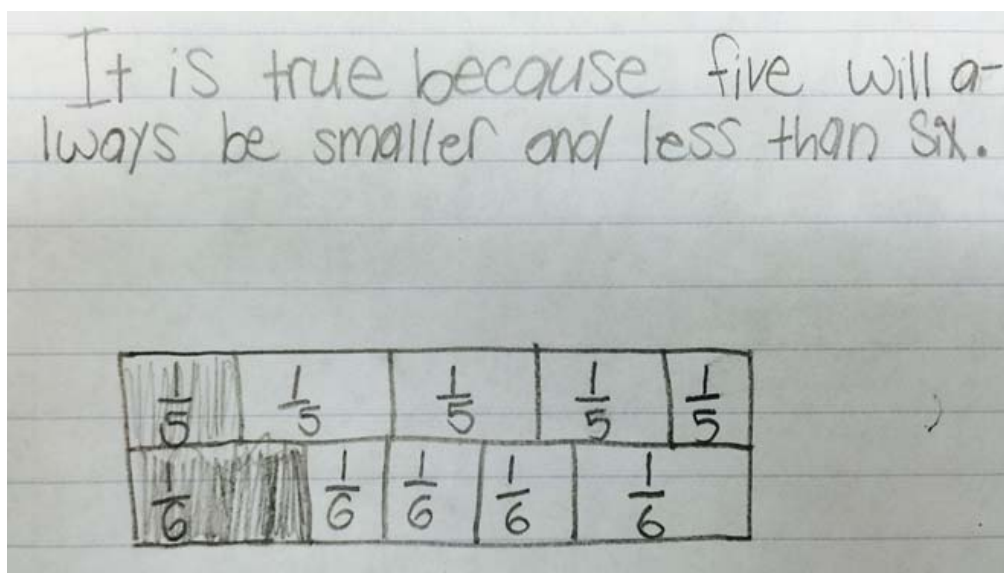 It is true because five will a-
lways be smaller and less than six.
1/5 1/5 1/5 1/5 1/5
1/6 1/6 1/6 1/6 1/6